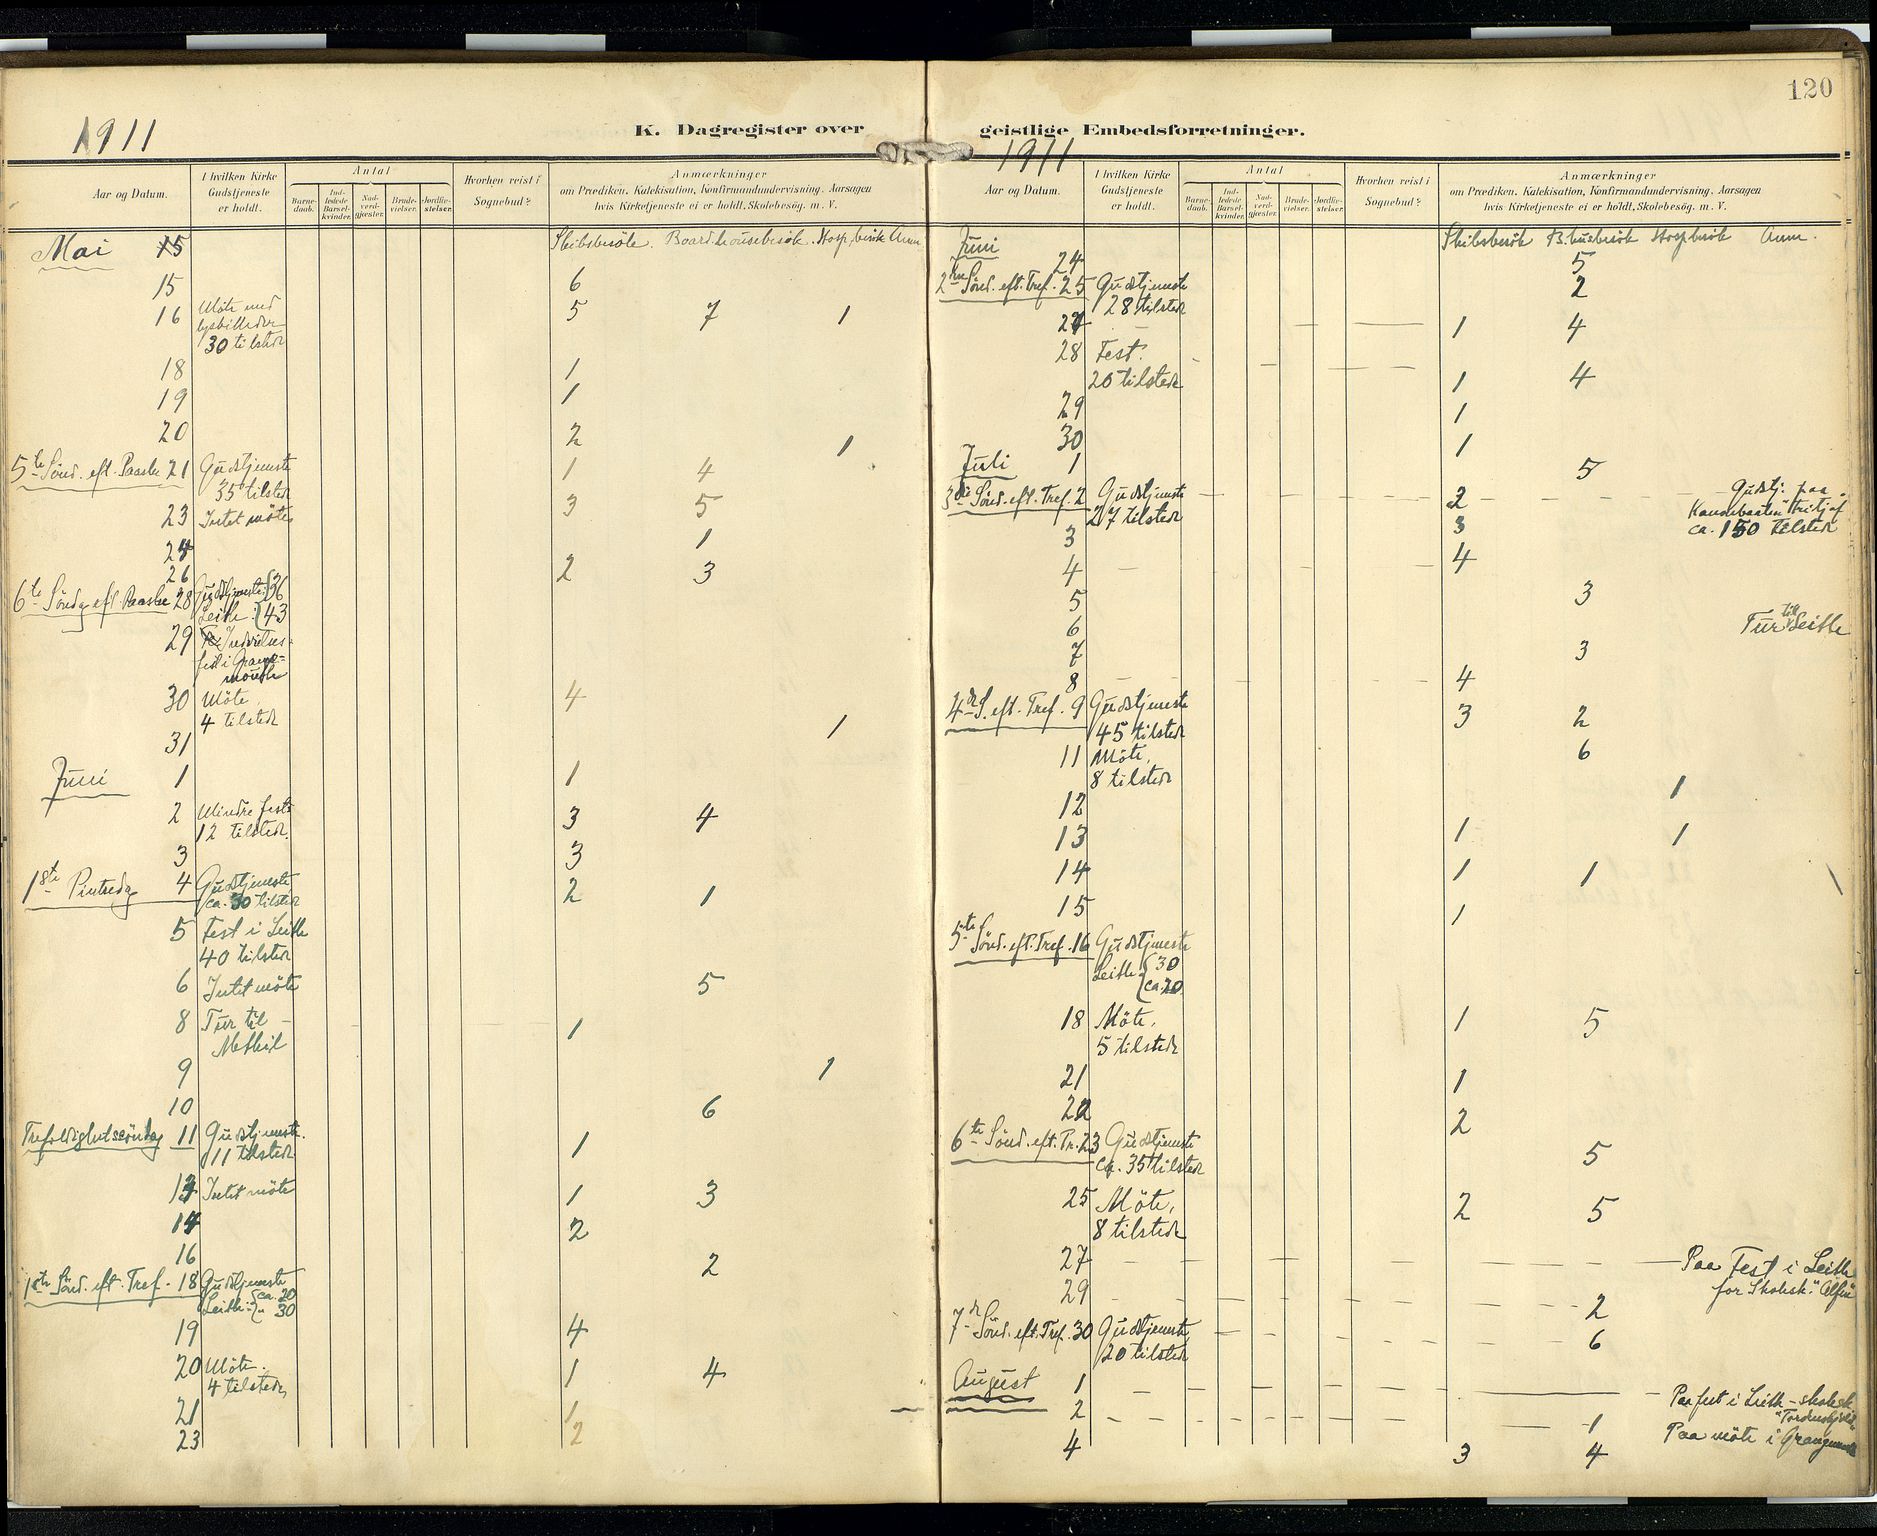 120
K. Dagregister over geistlige Embedsforretninger.
1911
Aar og Datum.
I hvilken Kirke Gudstjeneste er holdt.
Antal
Barnedaab.
Indledede Barselkvinder.
Nadverdgjæster.
Brudevielser.
Jordfæstelser.
Hvorhen reist i Sognebud?
Anmærkninger
om Prædiken, Katekisation, Konfirmandundervisning. Aarsagen
hvis Kirketjeneste ei er holdt, Skolebesøg. m. V.
Skibsbesök. Boardhousebesök. Hosp.besök Anm.
Mai 15
15 6
16 Möte med 5 7 1
lysbilleder
30 tilstede
18 1
19 1
20 2 1
5te Sönd. eft. Paaske 21 Gudstjeneste 1 4
35 tilstede
23 Intet möte 3 5
24 1
26 2 3
6te Söndg eft. Paaske 28 Gudstjeneste: 36
Leith: 43
29 Indvielses-
fest i Grange-
mouth
30 Möte, 4
4 tilstede
31 1
Juni 1 1
2 Mindre fest 3 4
12 tilstede.
3 3
1ste Pintsedag 4 Gudstjeneste 2 1
ca. 30 tilstede
5 Fest i Leith
40 tilstede
6 Intet möte 5
8 Tur til 1
Methil
9 1
10 6
Trefoldighetssöndag 11 Gudstjeneste. 1
11 tilstede
13 Intet möte 1 3
14 2
16 2
1ste Sönd. eft. Tref. 18 Gudstjeneste ca. 20
Leith: " 30
19 4
20 Möte. 1 4
4 tilstede,
21 1
23 2
1911
Aar og Datum.
I hvilken Kirke Gudstjeneste er holdt.
Antal
Barnedaab.
Indledede Barselkvinder.
Nadverdgjæster.
Brudevielser.
Jordfæstelser.
Hvorhen reist i Sognebud?
Anmærkninger
om Prædiken. Katekisation, Konfirmandundervisning. Aarsagen
hvis Kirketjeneste ei er holdt, Skolebesøg. m. V.
Juni Skibsbesök B.husbesök Hospbesök Anm.
24 5
2den Sönd. eft. Tref. 25 Gudstjeneste 2
28 tilstede
27 1 4
28 Fest.
20 tilstede 1 4
29 1
30 1
Juli 1 5
3die Sönd. eft. Tref. 2 Gudstjeneste 2 Gudstj. paa
27 tilstede Kanonbaaten "Fritjof
3 3 ca. 150 tilstede
4 4
5 3
6 Tur til Leith
7 3
8 4
4de S. eft. Tref. 9 Gudstjeneste 3 2
45 tilstede
11 Möte, 6
8 tilstede
12 1
13 1 1
14 1 1
15 1
5te Sönd. eft. Tref. 16 Gudstjeneste
Leith: 30
ca. 20
18 Möte, 1 5
5 tilstede
21 1
22 2
6te Sönd. eft. Tr. 23 Gudstjeneste 5
ca. 35 tilstede
25 Möte, 2 5
8 tilstede
27 Paa Fest i Leith
for Skolesk.
29 2
7de Sönd. eft. Tref. 30 Gudstjeneste 6
20 tilstede
August 1 Paa fest i Leith - skolesk.
2 1 Paa möte i Grangemouth
4 3 4